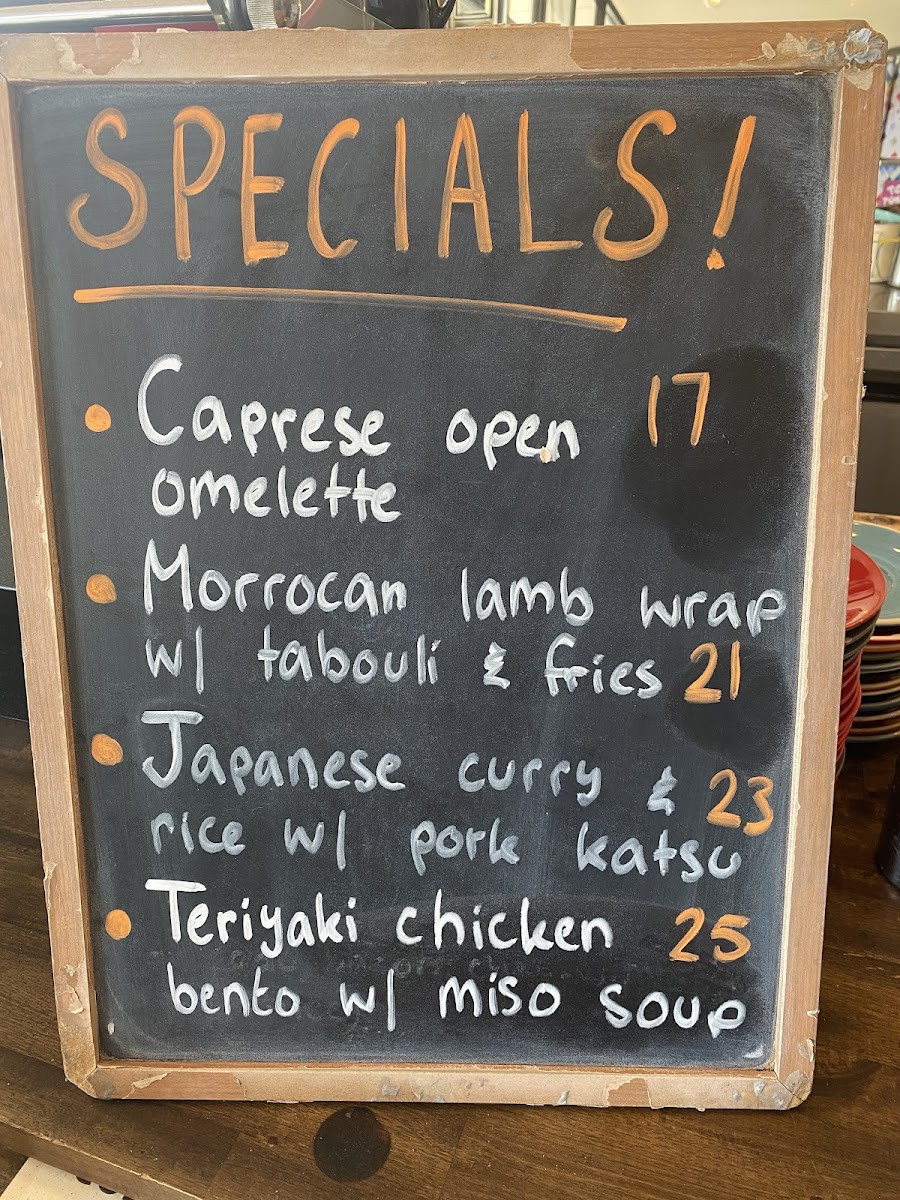 SPECIALS!
Caprese open 17
omelette
Morrocan lamb wrap
w/ tabouli & fries 21
Japanese curry & 23
rice w/ pork katsu
Teriyaki chicken 25
bento w/ miso soup